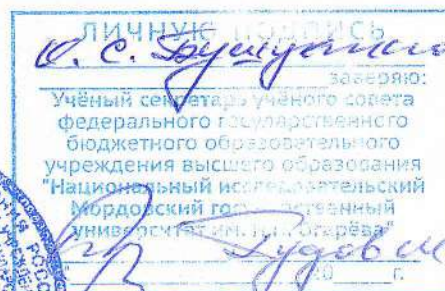 ЛИЧНУЮ ПОДПИСЬ
О. С.
заверяю:
Учёный секретарь учёного совета
федерального государственного
бюджетного образовательного
учреждения высшего образования
"Национальный исследовательский
Мордовский государственный
университет им. Н.П. Огарёва"
г.